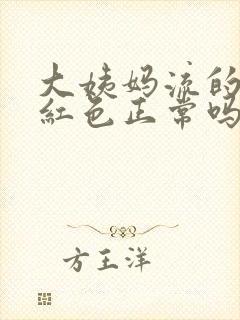 大姨妈流的
红色正常吗
方王洋